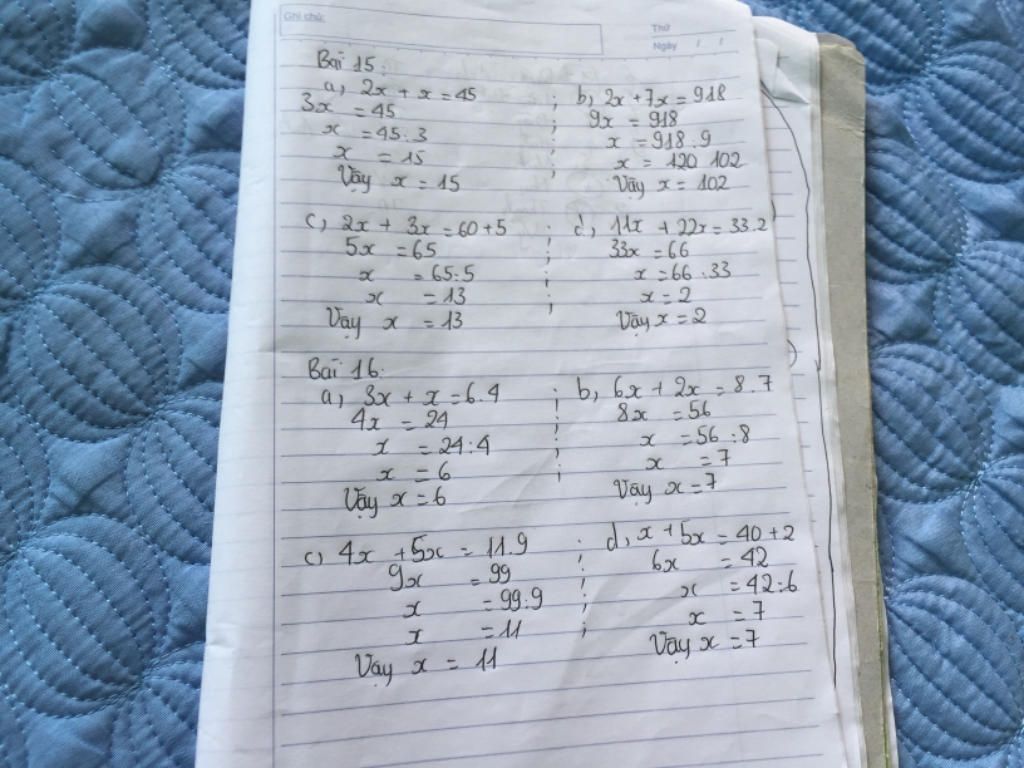 Ghi chú:
Thứ
Ngày / /
Bài 15:
a, 2x + x = 45 ; b, 2x + 7x = 918
3x = 45 ; 9x = 918
x = 45:3 ; x = 918:9
x = 15 ; x = 120 102
Vậy x = 15 Vậy x = 102
c, 2x + 3x = 60 + 5 ; d, 11x + 22x = 33.2
5x = 65 ; 33x = 66
x = 65:5 ; x = 66:33
x = 13 ; x = 2
Vậy x = 13 Vậy x = 2
Bài 16:
a, 3x + x = 6.4 ; b, 6x + 2x = 8.7
4x = 24 ; 8x = 56
x = 24:4 ; x = 56:8
x = 6 ; x = 7
Vậy x = 6 Vậy x = 7
c, 4x + 5x = 11.9 ; d, x + 5x = 40 + 2
9x = 99 ; 6x = 42
x = 99:9 ; x = 42:6
x = 11 ; x = 7
Vậy x = 11 Vậy x = 7